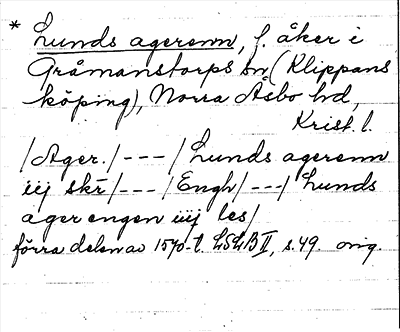 * Lunds agerenn, f. åker i
Gråmanstorps sn (Klippans
köping), Norra Åsbo hd,
Krist. l.
/Ager./ --- / Lunds agerenn
iij skr̄ / --- / Engh / --- / Lunds
ager engen iiij les /
förra delen av 1570-t. LSLB II, s. 49. orig.